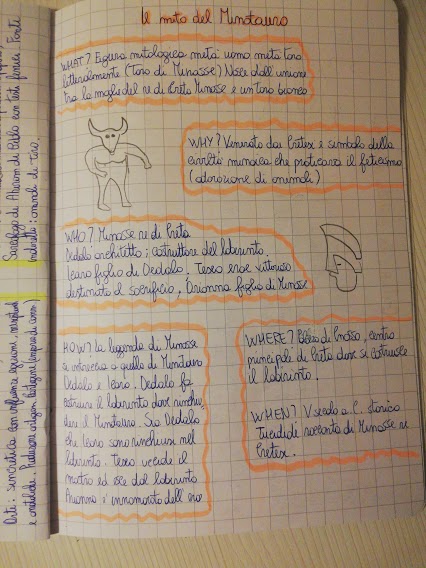 Il mito del Minotauro
WHAT? Figura mitologica metà uomo metà toro
letteralmente (Toro di Minosse) Nasce dall'unione
tra la moglie del re di Creta Minosse e un toro bianco
WHY? Venerato dai Cretesi è simbolo della
civiltà minoica che praticava il feticismo
(adorazione di animali)
WHO? Minosse re di Creta
Dedalo architetto; costruttore del labirinto.
Icaro figlio di Dedalo. Teseo eroe vittorioso
destinato al sacrificio, Arianna figlia di Minosse
HOW? La leggenda di Minosse
si intreccia a quella di Minotauro
Dedalo e Icaro. Dedalo fa
costruire il labirinto dove rinchiu
dere il Minotauro. Sia Dedalo
che Icaro sono rinchiusi nel
labirinto. Teseo uccide il
mostro ed esce dal labirinto
Arianna è innamorata dell'eroe
WHERE? Palazzo di Cnosso, centro
principale di Creta dove si costruisce
il labirinto.
WHEN? V secolo a.C. storico
Tucidide racconta di Minosse re
Cretese.
Sarcofago di Ahiram di Biblo con testi fenici Fonti
Arti: sincratica con influenze egiziane,